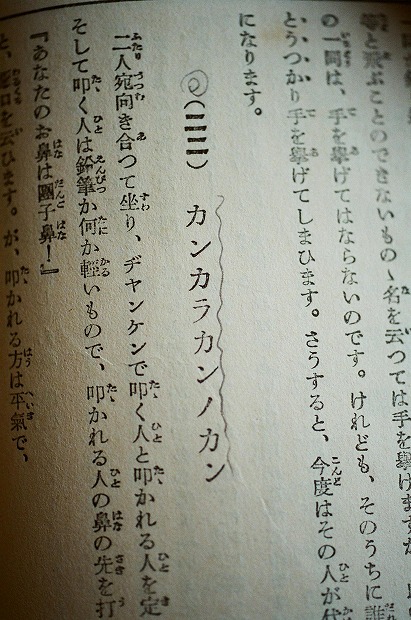 と飛ぶことのできないものゝ名を云つては手を擧げますが
の一同は、手を擧げてはならないのです。けれども、そのうちに誰
と、うつかり手を擧げてしまひます。さうすると、今度はその人が代
になります。
(三三) カンカラカンノカン
二人宛向き合つて坐り、ヂヤンケンで叩く人と叩かれる人を定
そして叩く人は鉛筆か何か輕いもので、叩かれる人の鼻の先を打
『あなたのお鼻は團子鼻！』
と、惡口を云ひます。が、叩かれる方は平氣で、